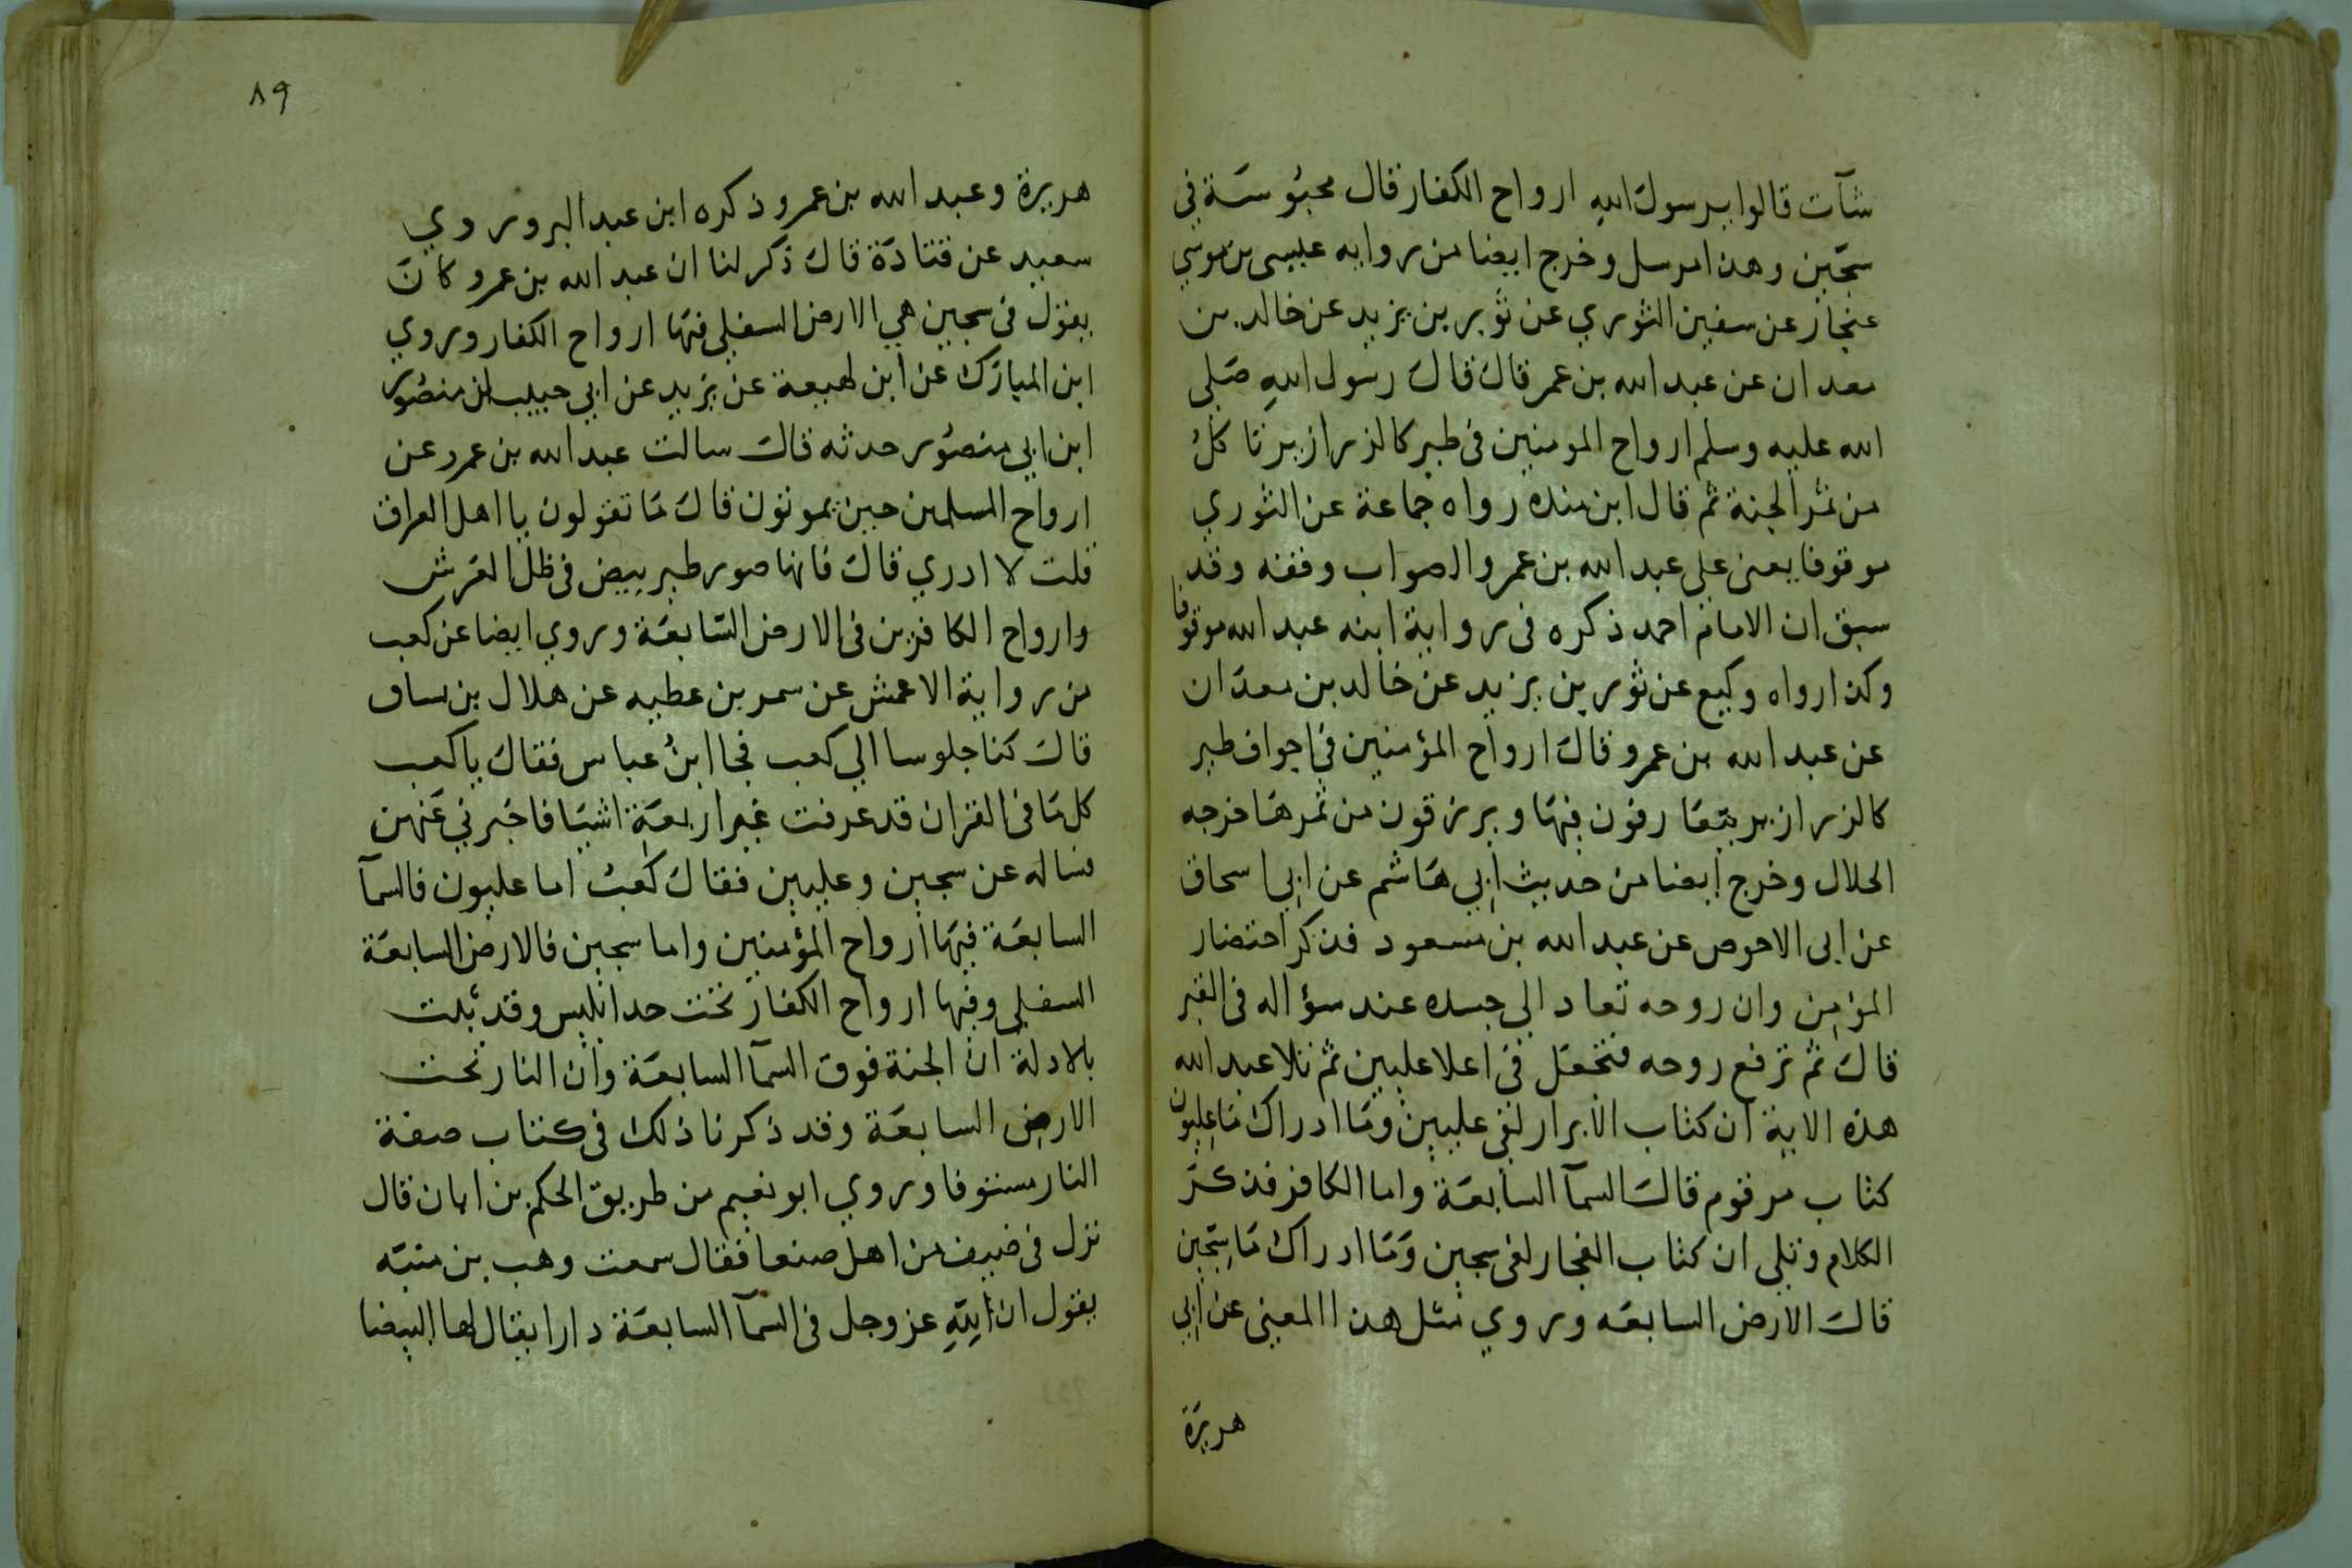 شآت قالوا يرسول الله ارواح الكفار قال محبوسة في
سجين وهذا مرسل وخرج ايضا من روايه عيسى بن موسي
عنجار عن سفين الثوري عن ثور بن يزيد عن خالد بن
معدان عن عبد الله بن عمر قال قال رسول الله صلى
الله عليه وسلم ارواح المومنين في طير كالزرازير تاكل
من ثمر الجنة ثم قال ابن منده رواه جماعة عن الثوري
موقوفا يعني علي عبد الله بن عمر والصواب وقفه وقد
سبق ان الامام احمد ذكره في رواية ابنه عبد الله موقوفا
وكذا رواه وكيع عن ثور بن يزيد عن خالد بن معدان
عن عبد الله بن عمرو قال ارواح المؤمنين في اجواف طير
كالزرازير يتعارفون فيها ويرزقون من ثمرها خرجه
الخلال وخرج ايضا من حديث ابي هاشم عن ابي اسحاق
عن ابى الاحوص عن عبد الله بن مسعود فذكر احتضار
المؤمن وان روحه تعاد الي جسده عند سؤاله في القبر
قال ثم ترفع روحه فتجعل في اعلا عليين ثم تلا عبد الله
هذه الاية ان كتاب الابرار لفي عليين وما ادراك ما عليون
كتاب مرقوم قال السمآ السابعة واما الكافر فذكر
الكلام وتلي ان كتاب الفجار لفي سجين وما ادراك ما سجين
قال الارض السابعه وروي مثل هذا المعني عن ابي
هريرة
٨٩
هريرة وعبد الله بن عمرو ذكره ابن عبد البر وروي
سعيد عن قتادة قال ذكر لنا ان عبد الله بن عمرو كان
يقول في سجين هي الارض السفلي فيها ارواح الكفار وروي
ابن المبارك عن ابن لهيعة عن يزيد عن ابي حبيب ان منصور
ابن ابي منصور حدثه قال سالت عبد الله بن عمرو عن
ارواح المسلمين حين يموتون قال ما تقولون يا اهل العراق
قلت لا ادري قال فانها صور طير بيض في ظل العرش
وارواح الكافرين في الارض السابعة وروي ايضا عن كعب
من رواية الاعمش عن سمر بن عطيه عن هلال بن يساف
قال كنا جلوسا الي كعب فجا ابن عباس فقال يا كعب
كل ما في القران قد عرفت غير اربعة اشيا فاخبرني عنهن
فساله عن سجين وعليين فقال كعب اما عليون فالسمآ
السابعة فيها ارواح المؤمنين واما سجين فالارض السابعة
السفلي وفيها ارواح الكفار تحت حد ابليس وقد ثبت
بالادلة ان الجنة فوق السمآ السابعة وان النار تحت
الارض السابعة وقد ذكرنا ذلك في كتاب صفة
النار مستوفا وروي ابو نعيم من طريق الحكم بن ابان قال
نزل في ضيف من اهل صنعا فقال سمعت وهب بن منبه
يقول ان لله عز وجل في السمآ السابعة دارا يقال لها البيضا